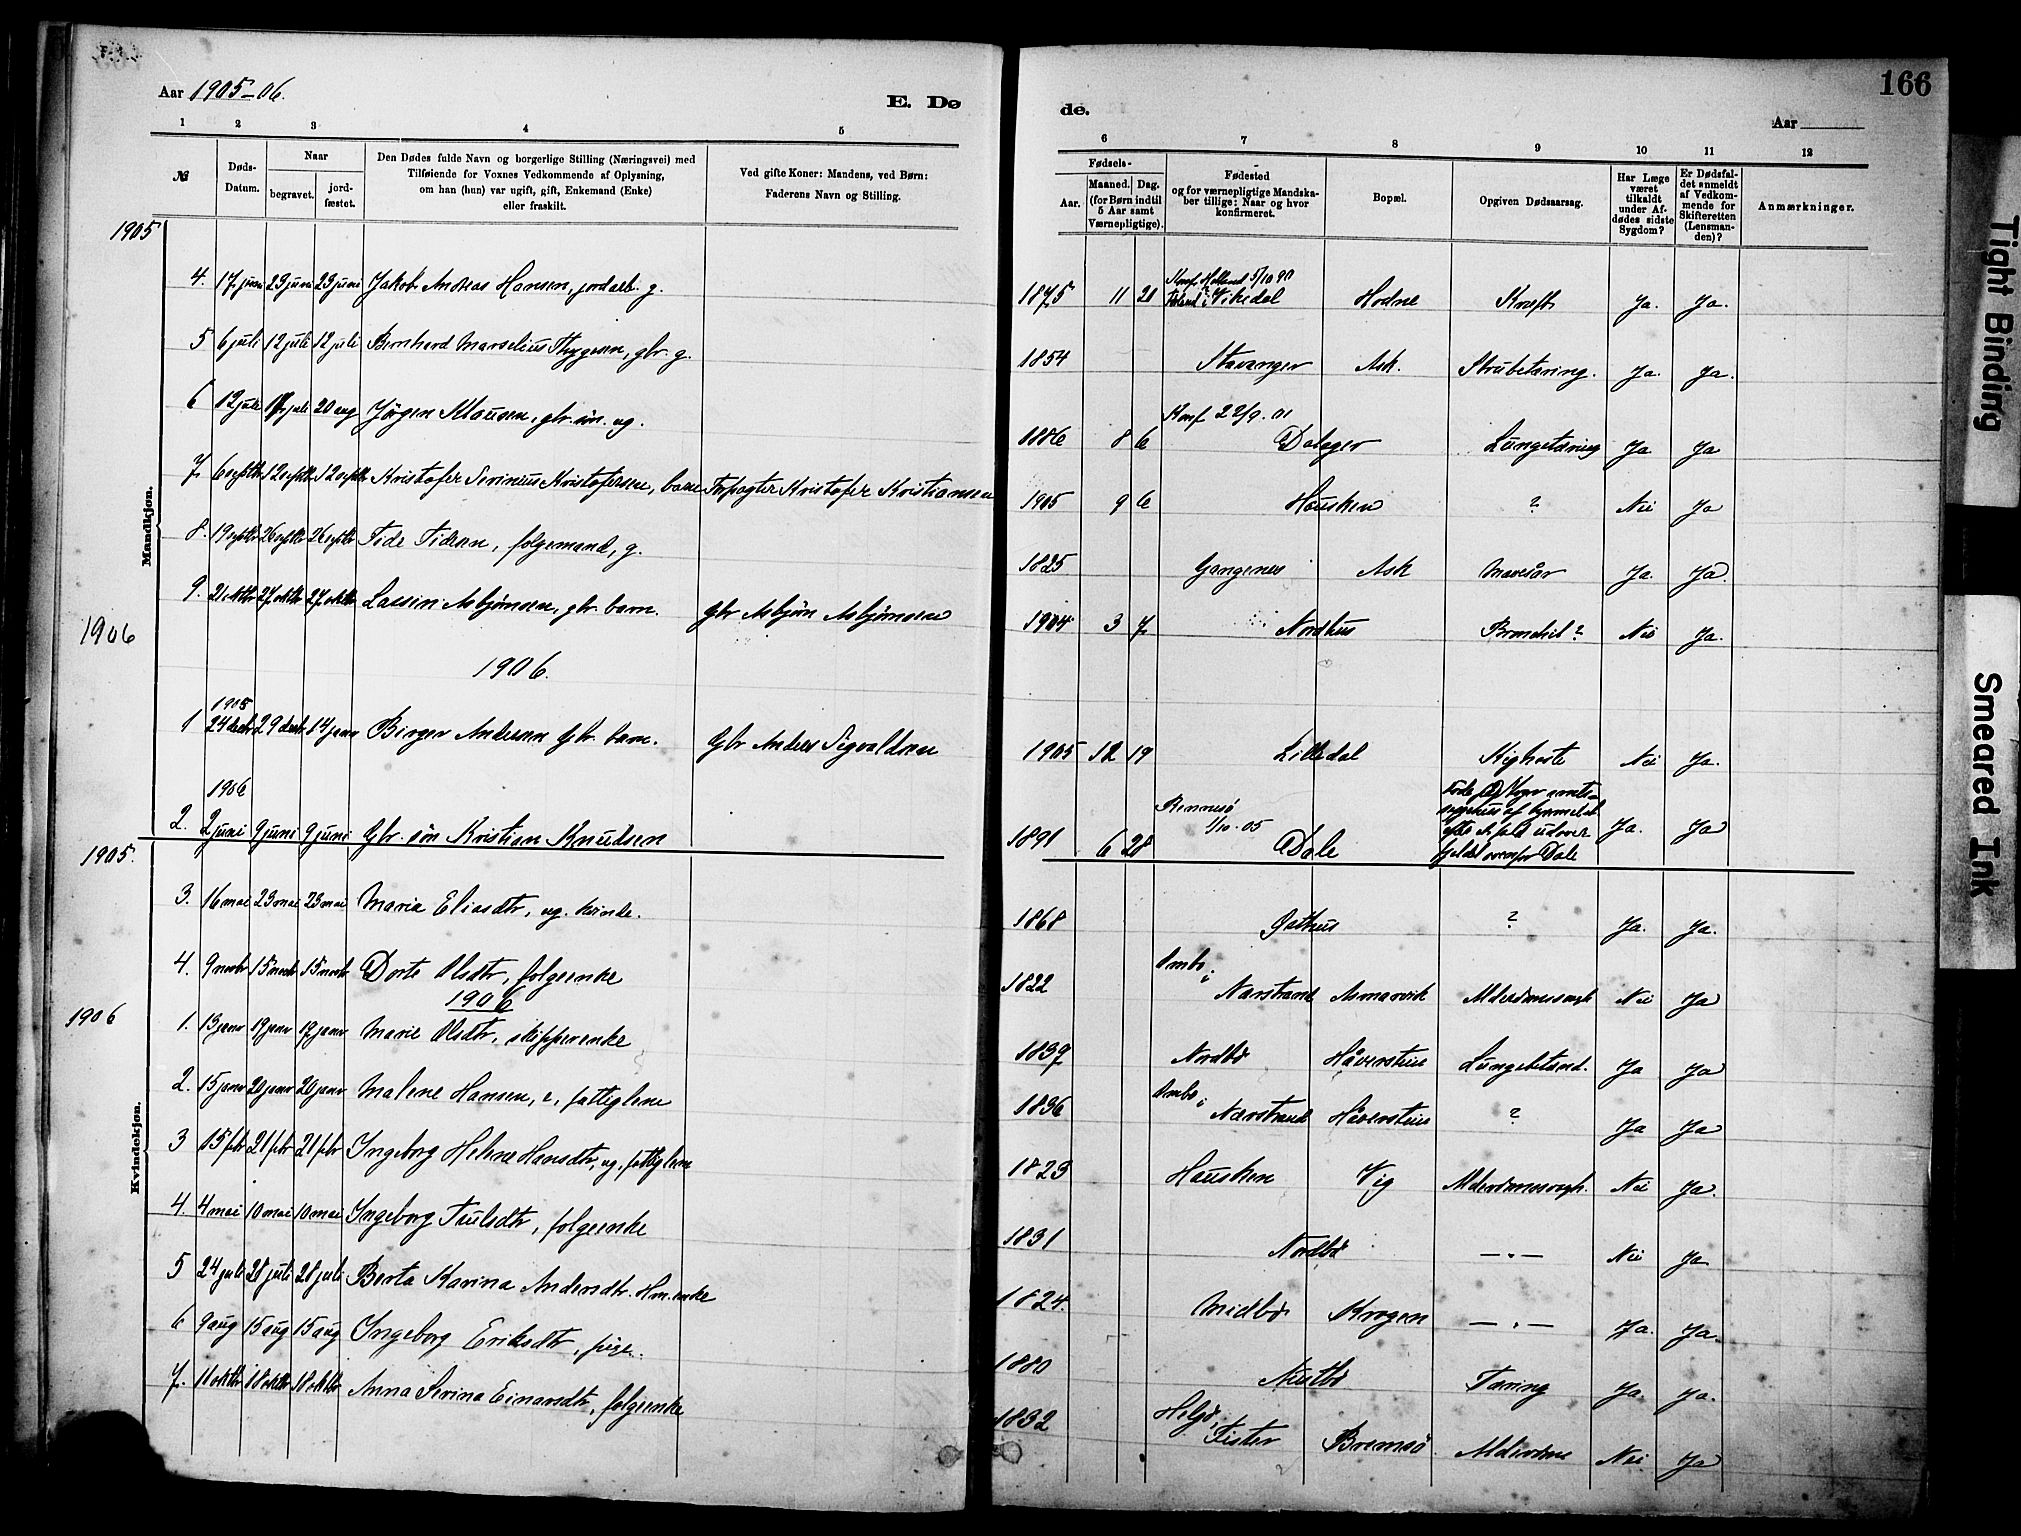 166
Aar 1905-06.
E. Dø
de.
Aar
1 2 3 4 5 6 7 8 9 10 11 12
№
Døds-
Datum.
Naar
begravet.
jord-
fæstet.
Den Dødes fulde Navn og borgerlige Stilling (Næringsvei) med
Tilføiende for Voxnes Vedkommende af Oplysning,
om han (hun) var ugift, gift, Enkemand (Enke)
eller fraskilt.
Ved gifte Koner: Mandens, ved Børn:
Faderens Navn og Stilling.
Fødsels-
Aar.
Maaned. Dag.
(for Børn indtil
5 Aar samt
Værnepligtige).
Fødested
og for værnepligtige Mandska-
ber tillige: Naar og hvor
konfirmeret.
Bopæl.
Opgiven Dødsaarsag.
Har Læge
været
tilkaldt
under Af-
dødes sidste
Sygdom?
Er Dødsfal-
det anmeldt
af Vedkom-
mende for
Skifteretten
(Lensman-
den)?
Anmærkninger.
Mandkjøn.
1905
4. 17 juni 23 juni 23 juni Jakob Andreas Hansen, jordarb. g. 1875 11 20 Vikedal Hodne Kræft Ja. Ja.
5 6 juli 12 juli 12 juli Bernhard Marselius Thygesen, gbr. g. 1854 Stavanger Ask. Strubetæring. Ja. Ja.
6 12 juli 17 juli 20 aug Jørgen Klausen, gbr. søn. ug. Konf 22/9. 01
1886 8 6 Dalager Lungetæring Ja Ja
7. 6 septbr 12 septbr 12 septbr Kristofer Serinius Kristofersen, barn Forpagter Kristofer Kristiansen 1905 9 6 Hausken ? Nei Ja
8. 19 septbr 26 septbr 26 septbr Tide Tidesen, folgemand, g. 1825 Gangenes Ask Mavesår Ja. Ja.
9. 21 oktbr 27 oktbr 27 oktbr Lassin Asbjørnsen, gbr. barn. Gbr Asbjørn Asbjørnsen 1904 3 7. Nordhus Bronchit? Nei Ja.
1906
1906.
1905
1 24 decbr 29 decbr 14 janr Birger Andersen Gbr. barn. Gbr Anders Sigvaldsen 1905 12 19 Lilledal Kighoste Nei Ja.
1906
2. 2 juni 9 juni 9 juni Gbr. søn Kristian Knudsen Rennesø
1/10. 05
1891 6 28 Dale Ja. Ja
fjeldet ovenfor Dale
Kvindekjøn.
1905.
3. 16 mai 23 mai 23 mai Maria Eliasdtr, ug. kvinde. 1868 Gathus ? Ja. Ja.
4. 9 novbr 15 novbr 15 novbr Dorte Olsdtr, folgeenke 1822 Ombo i
Narstrand Asmarvik Alderdomssvagh. Nei Ja
1906
1906
1. 13 janr 19 janr 19 janr Marie Olsdtr, skipperenke 1839 Nordbø Håverstein Lungebetænd. Ja Ja
2. 15 janr 20 janr 20 janr Malene Hansen, e, fattiglem 1836 Ombo i
Nærstrand Håverstein ? Ja Ja
3 15 febr 21 febr 21 febr Ingeborg Helene Hansdtr, ug. fattiglem 1823 Hausken Vig Alderdomssvagh. Nei Ja.
4. 4 mai 10 mai 10 mai Ingeborg Truلsdtr, folgeenke 1831 Nordbø — " — Nei Ja
5 24 juli 28 juli 28 juli Berta Karina Andersdtr. Hm. enke 1824. Midbø Krogen — " — Ja. Ja.
6 9 aug 15 aug 15 aug Ingeborg Eriksdtr, pige. 1880 Nautbø Tæring Ja. Ja.
7. 11 oktbr 18 oktbr 18 oktbr Anna Serina Einarsdtr, folgeenke 1832 Helgø,
Fister Bremsø Nei Ja
Tight Binding
Smeared Ink